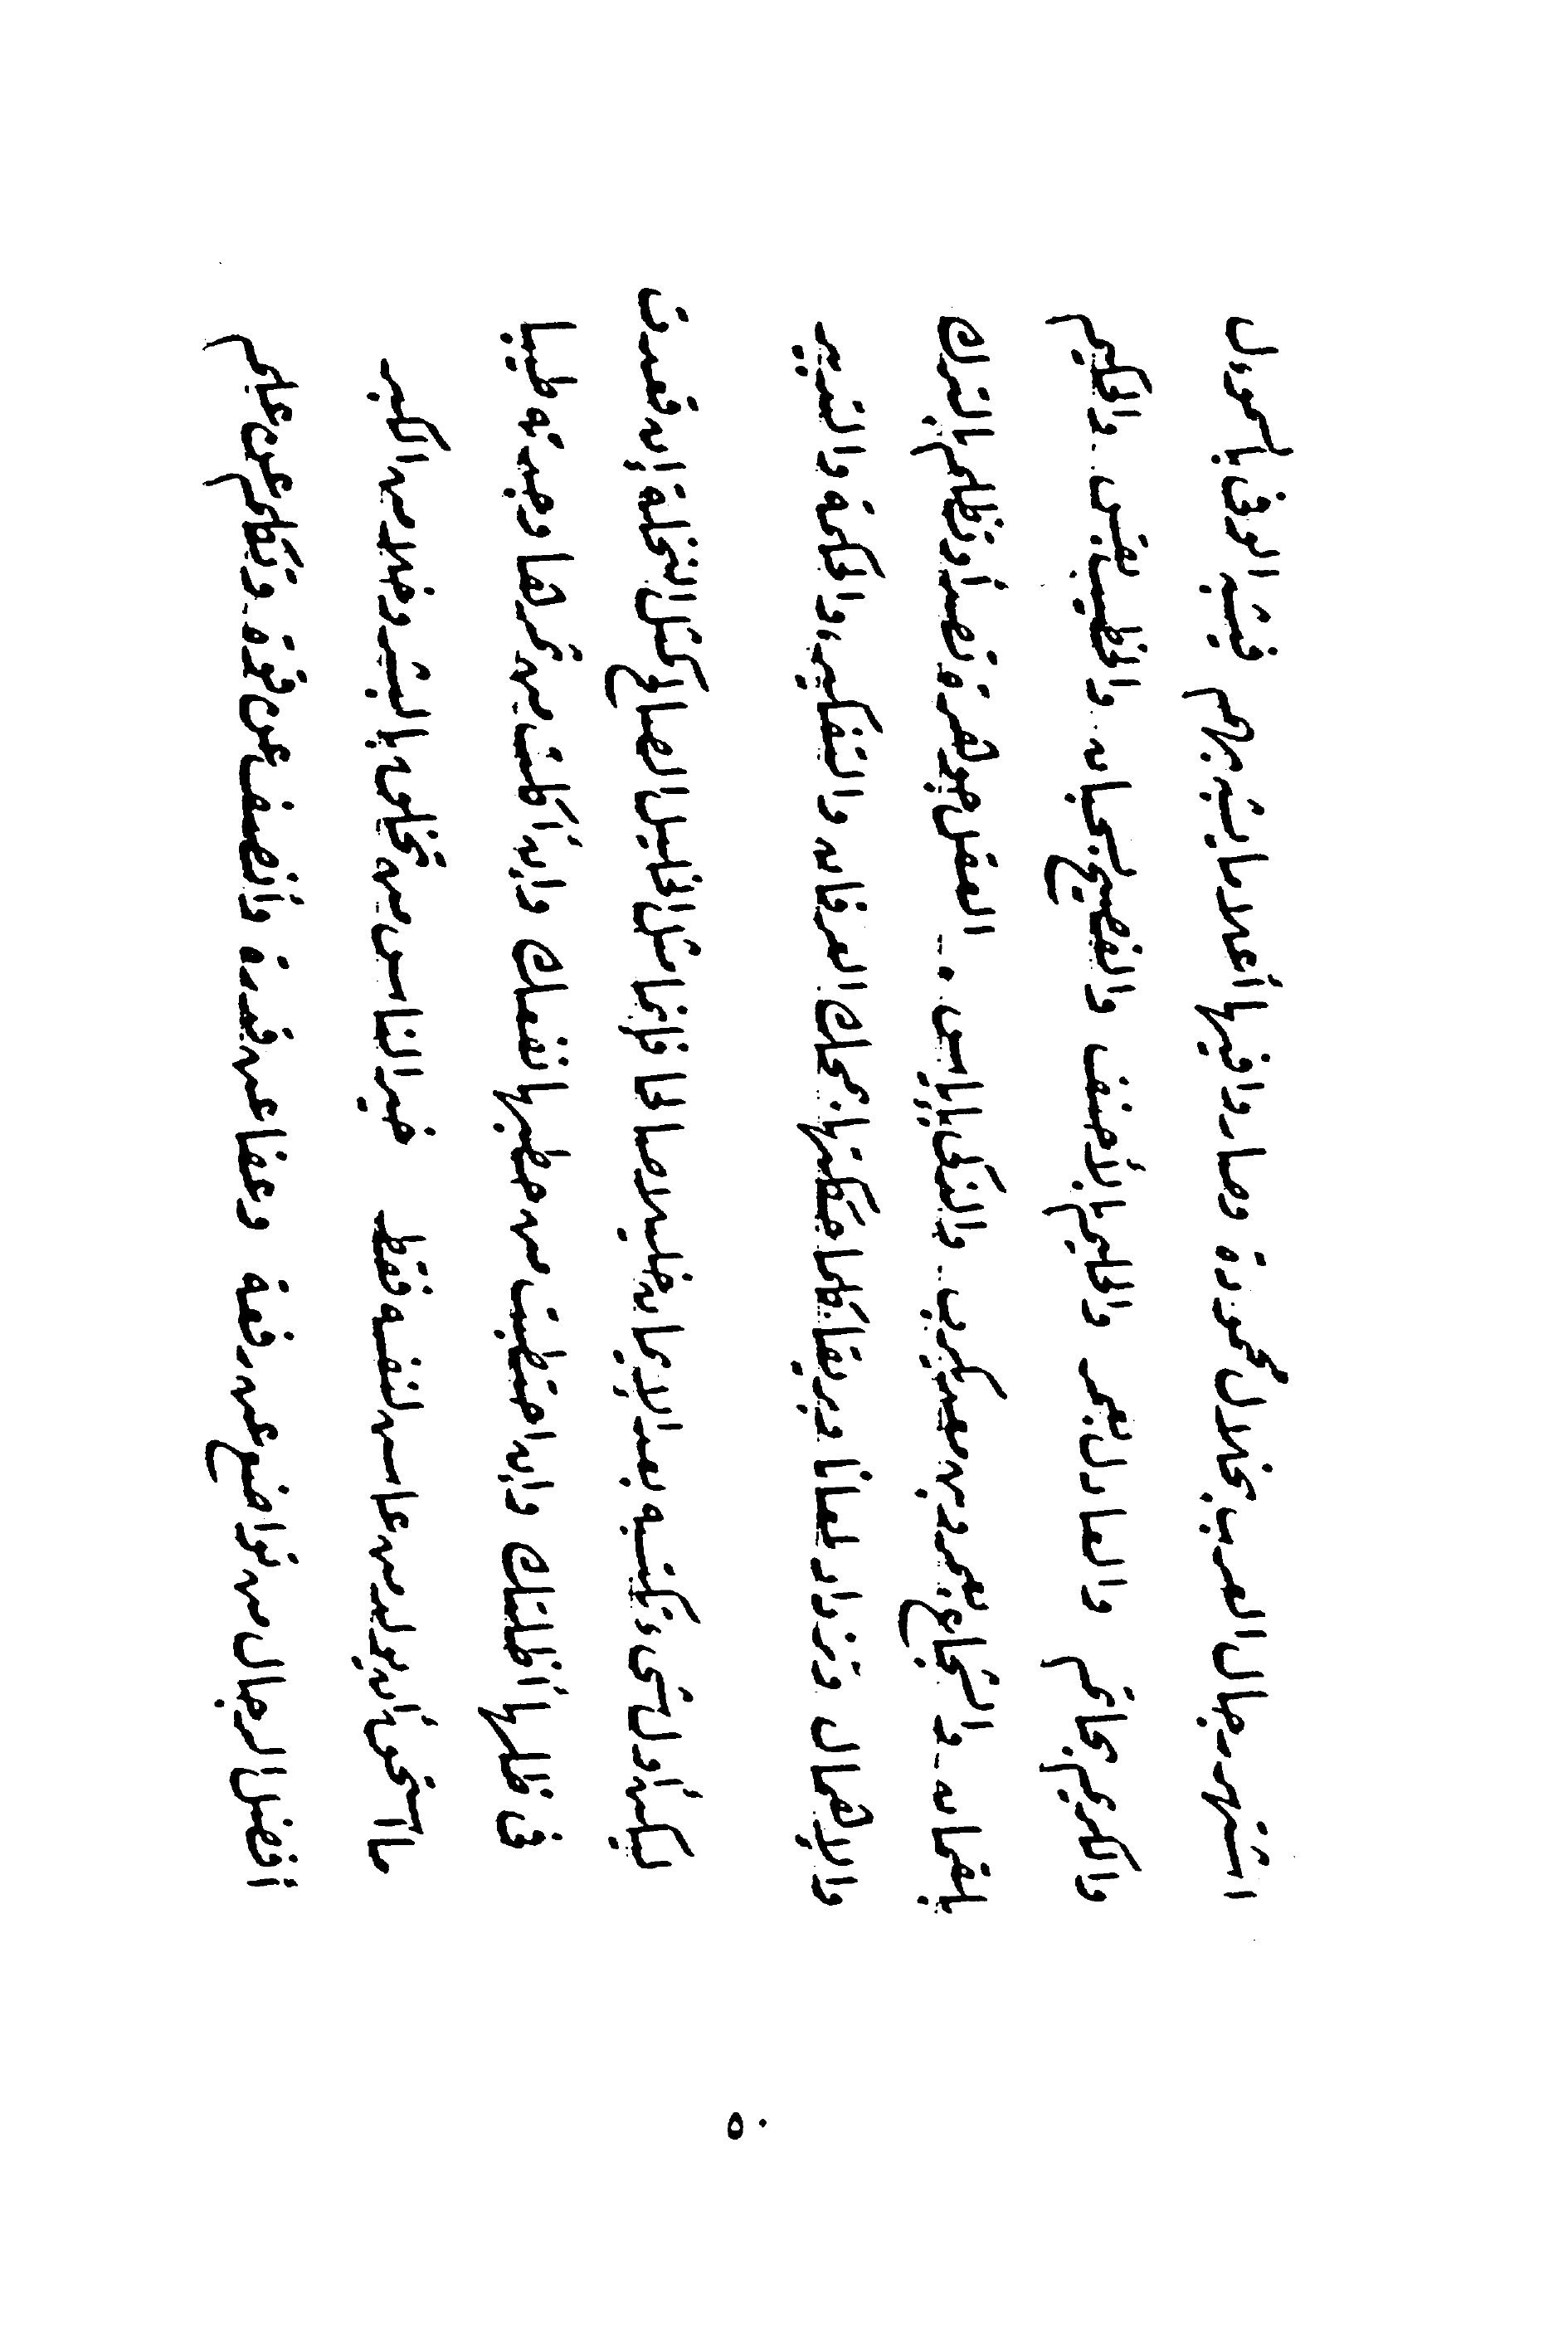 اشتهر رجال العرب بخلال محمودة وصاروا فيها أعلاما يشبه بهم فيشبه الوفى بالسموءل
والكريم بحاتم والعادل بعمر والحليم بالأحنف والفصيح بسحبان.. والخطيب بقس.. والحكيم
بلقمان.. والشجاع بعمرو بن معديكرب.. والذكى بإياس.. العقل جوهرة تصدأ وتظلم بالترك
والإهمال وتزداد لمعانا وبريقا كلما بمحك العرفان والتفكير، والحكمة والتدبير
ليكن أول شىء تكسبه بعد الإيمان خليلا صالحا فإنما مثل الخليل الصالح كمثل النخلة إن قعدت
فى ظلها أظلتك وإن احتطبت من حطبها نفعك وإن أكلت من ثمرها وجدته طيبا
ما استحق أن يولد من عاش لنفسه فقط خير الناس من تخلق بالبشر وخلا من الكبر
أفضل الرجال من تواضع عن رفعة وعفا عن قدرة وأنصف عن قوة.. وتكلم عن علم
٥٠